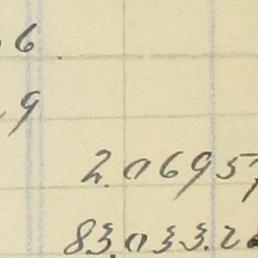 6
9
2.0695
83,033.2